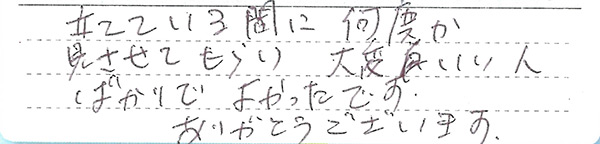 立てている間に 何度か
見させてもらい 大変良いい人
ばかりで よかったです.
ありがとうございます.